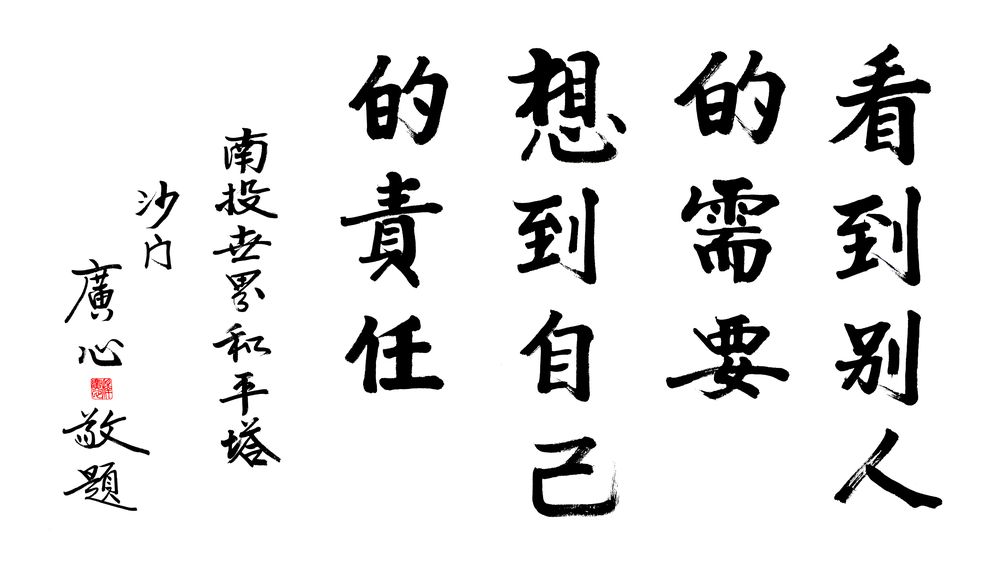 看到别人
的需要
想到自己
的責任
南投世界和平塔
沙门
廣心
敬題